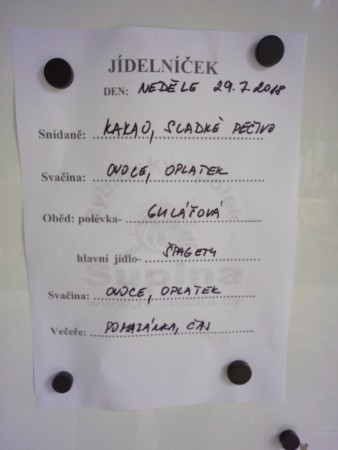 JÍDELNÍČEK
DEN: NEDĚLE 29.7.2018
Snídaně: KAKAO, SLADKÉ PEČIVO
Svačina: OVOCE, OPLATEK
Oběd: polévka- GULÁŠOVÁ
hlavní jídlo- ŠPAGETY
Svačina: OVOCE, OPLATEK
Večeře: POMAZÁNKA, ČAJ